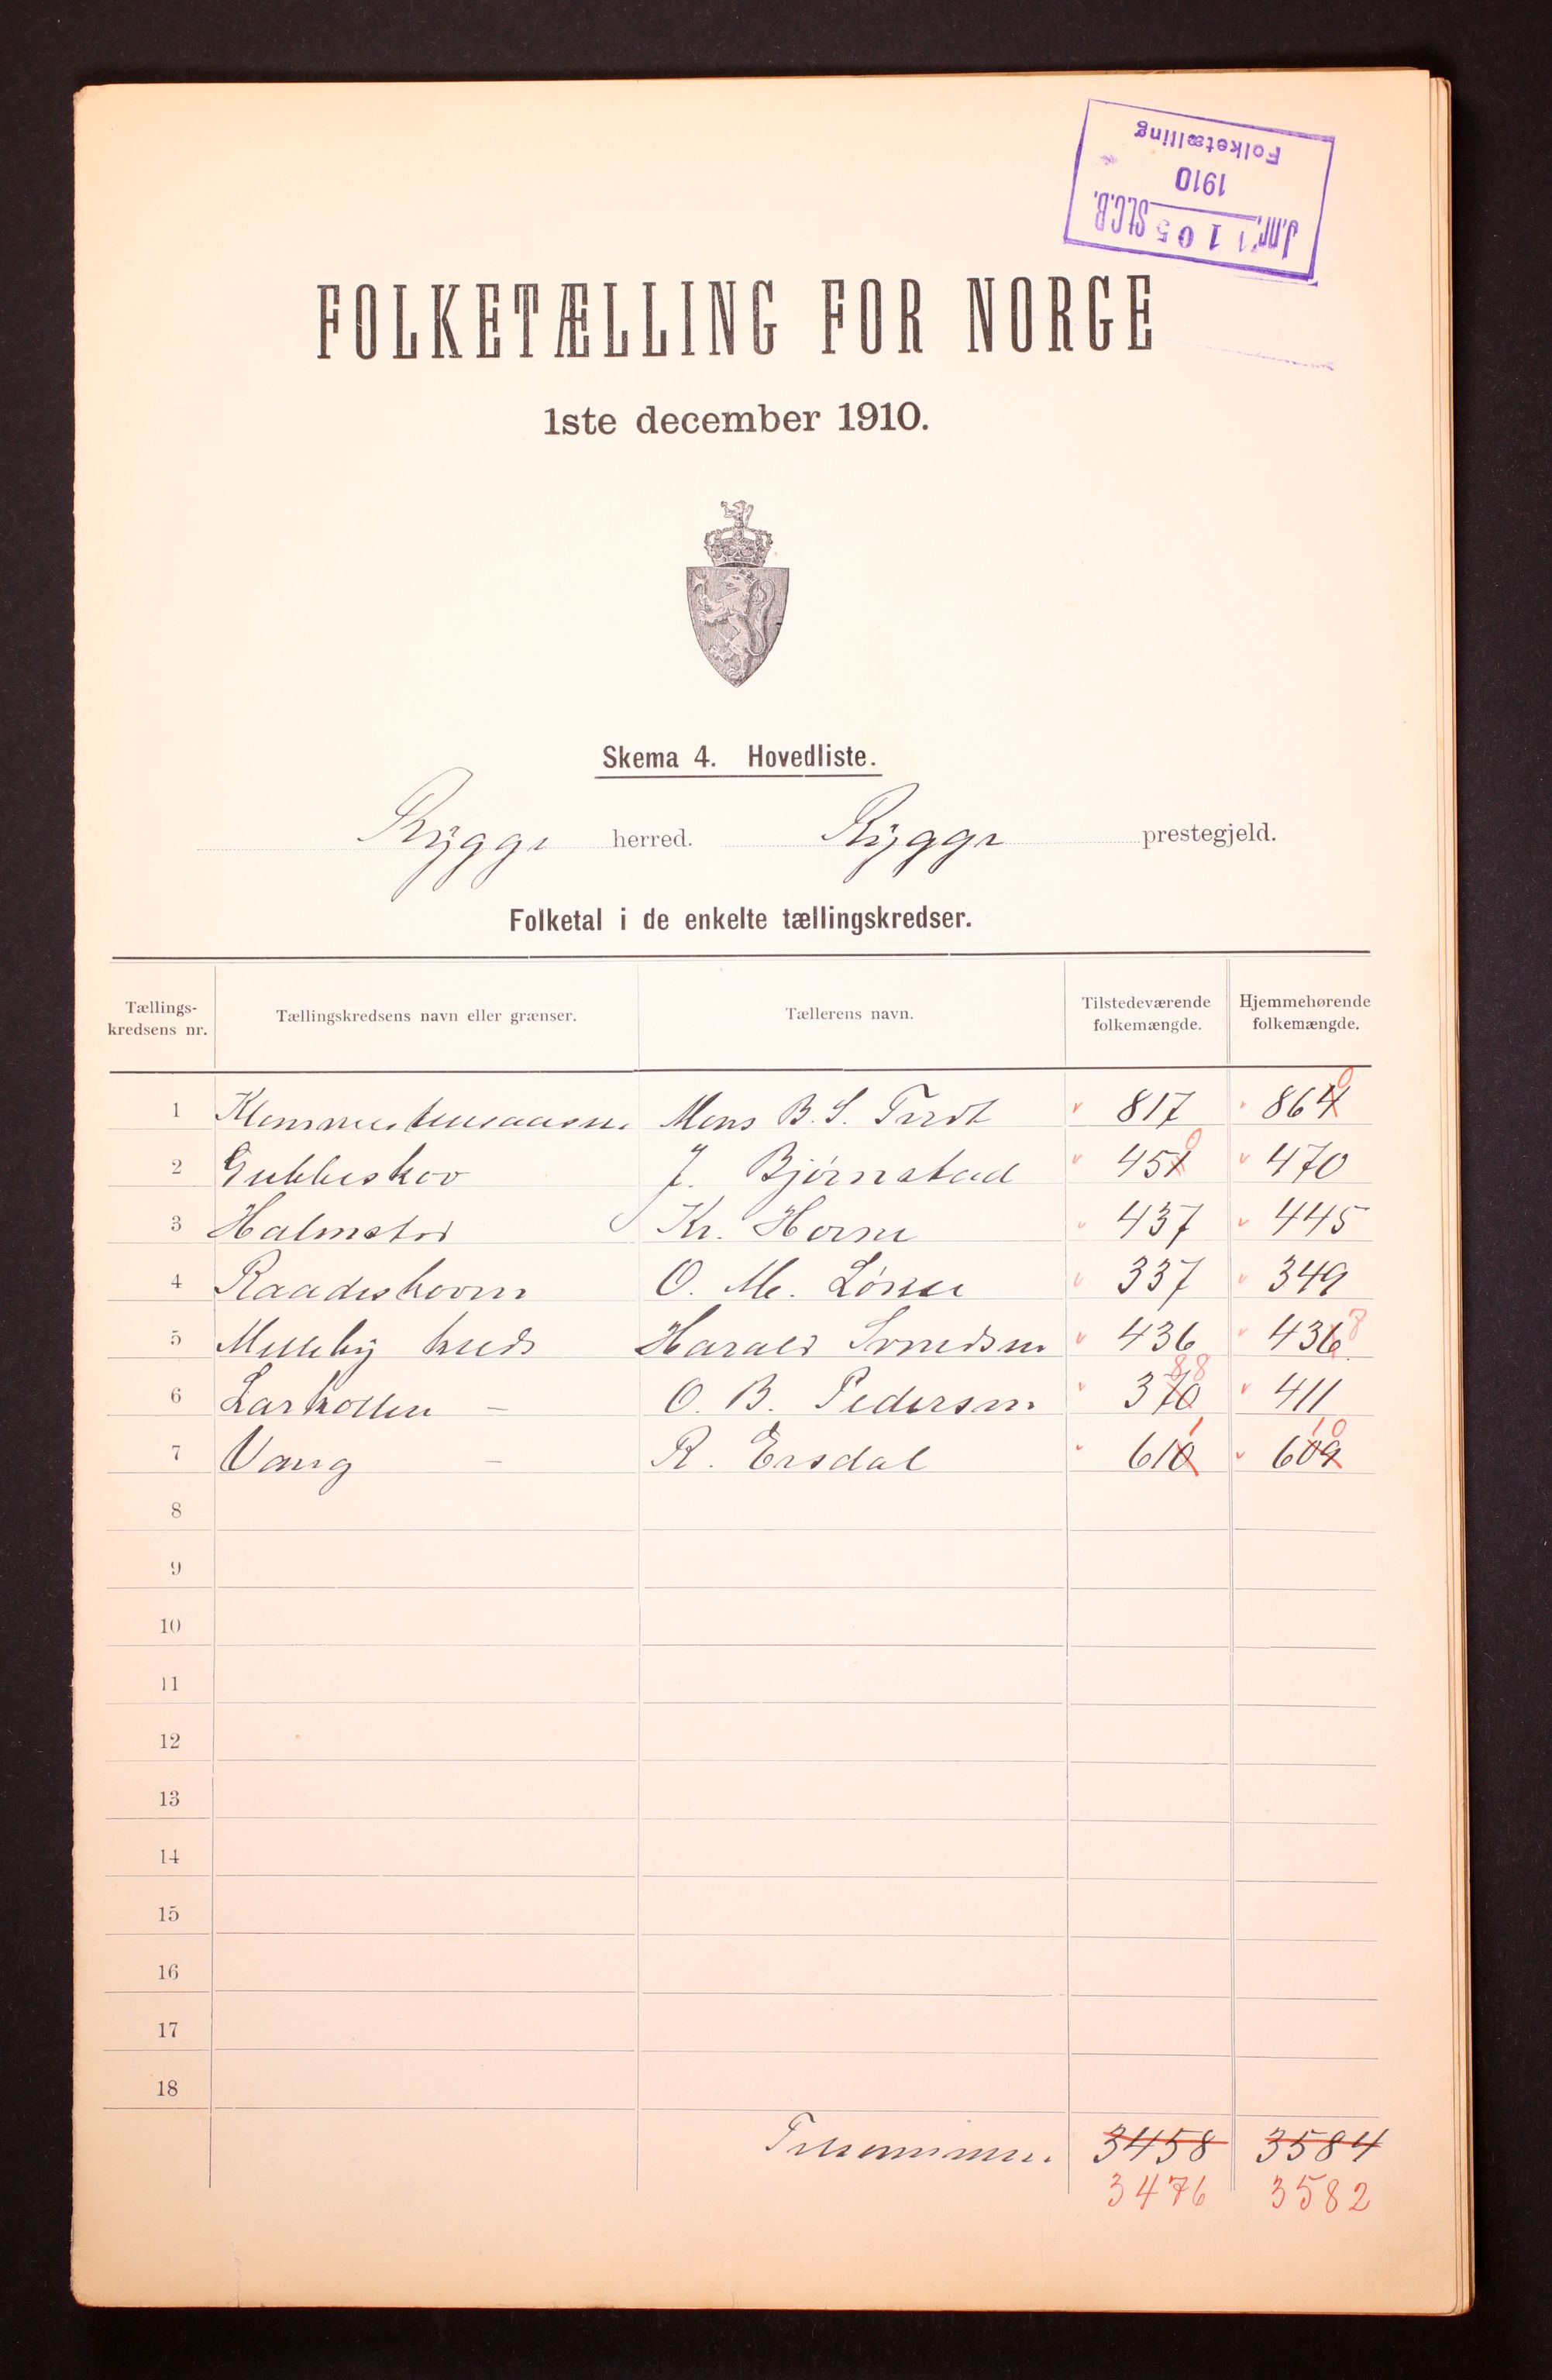 Folketælling
1910
J.nr. 1105 St.C.B.
FOLKETÆLLING FOR NORGE
1ste december 1910.
Skema 4. Hovedliste.
Rygge herred. Rygge prestegjeld.
Folketal i de enkelte tællingskredser.
Tællings-
kredsens nr.
Tællingskredsens navn eller grænser.
Tællerens navn.
Tilstedeværende
folkemængde.
Hjemmehørende
folkemængde.
1 Mons B. S. 817 8640
2 Gubbeskov J. Bjørnstad 4510 470
3 Halmstad Kr. Horne 437 445
4 Raadeskoven O. M. 337 349
5 Melleby kreds Harald Svendsen 436 4367
6 Larkollen – O. B. Pedersen 37088 411
7 Vang – R. Ersdal 6101 60910
8
9
10
11
12
13
14
15
16
17
18
Tilsammen 3458 3584
3476 3582